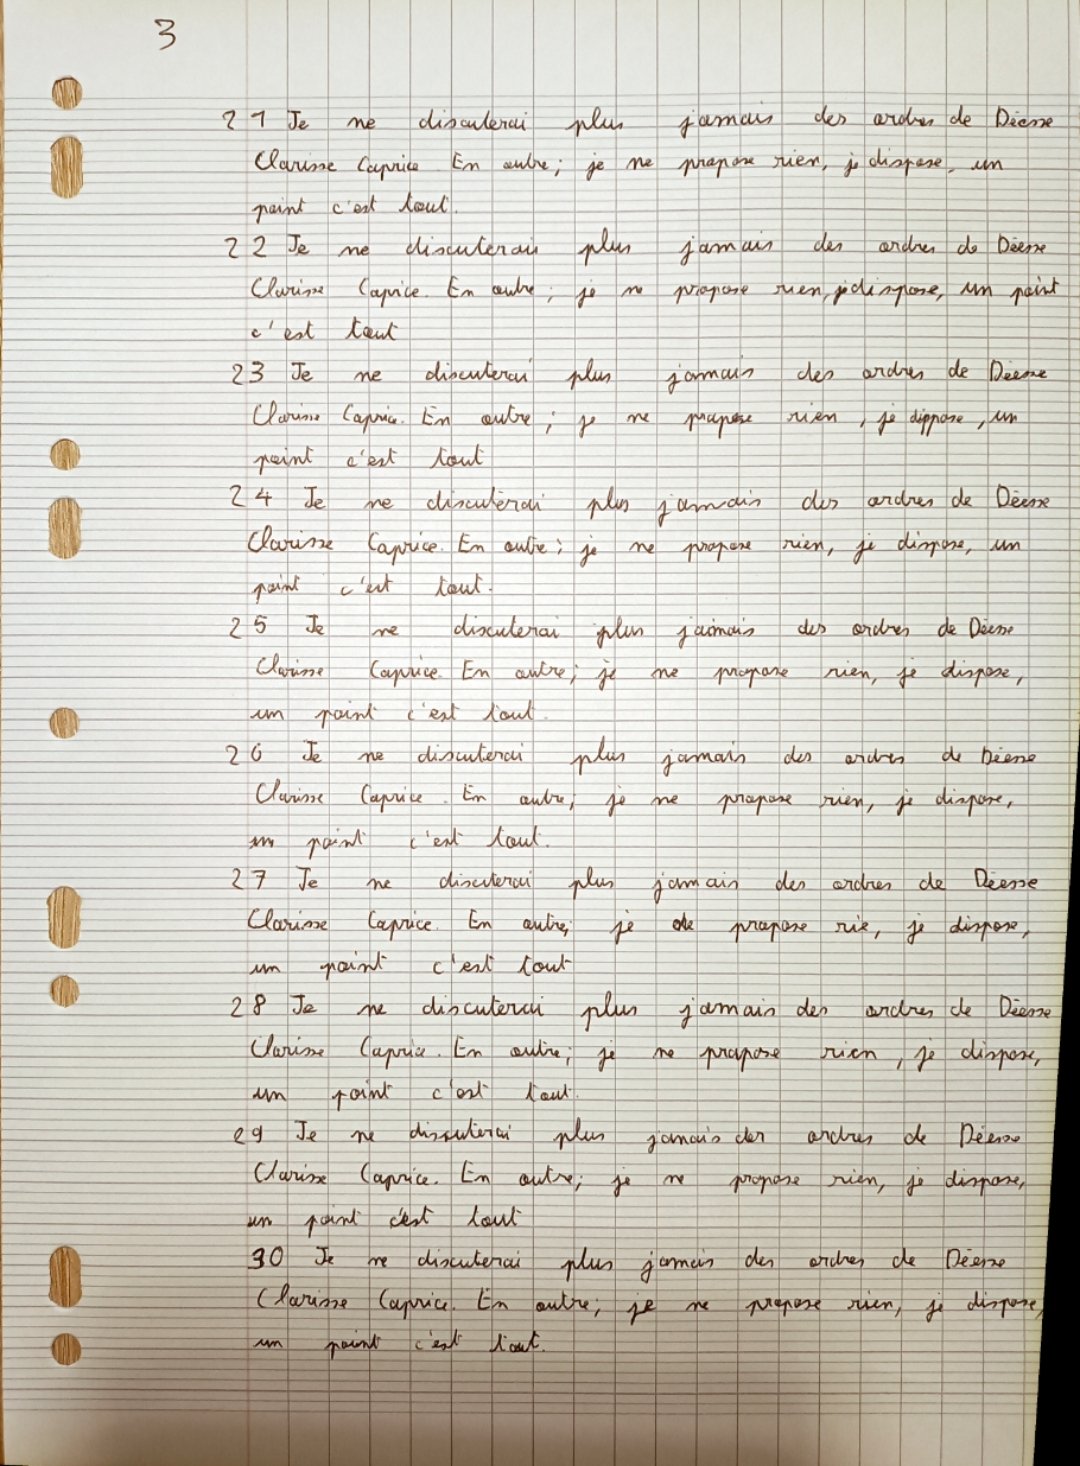 3
21 Je ne discuterai plus jamais des ordres de Déesse
Clarisse Caprice. En outre; je ne propose rien, je dispose, un
point c'est tout.
22 Je ne discuterai plus jamais des ordres de Déesse
Clarisse Caprice. En outre; je ne propose rien, je dispose, un point
c'est tout
23 Je ne discuterai plus jamais des ordres de Déesse
Clarisse Caprice. En outre; je ne propose rien, je dippose, un
point c'est tout
24 Je ne discuterai plus jamais des ordres de Déesse
Clarisse Caprice. En outre; je ne propose rien, je dispose, un
point c'est tout.
25 Je ne discuterai plus jamais des ordres de Déesse
Clarisse Caprice. En outre; je ne propose rien, je dispose,
un point c'est tout.
26 Je ne discuterai plus jamais des ordres de Déesse
Clarisse Caprice. En outre; je ne propose rien, je dispose,
un point c'est tout.
27 Je ne discuterai plus jamais des ordres de Déesse
Clarisse Caprice. En outre; je propose rie, je dispose,
un point c'est tout
28 Je ne discuterai plus jamais des ordres de Déesse
Clarisse Caprice. En outre; je ne propose rien, je dispose,
un point c'est tout.
29 Je ne discuterai plus jamais des ordres de Déesse
Clarisse Caprice. En outre; je ne propose rien, je dispose,
un point c'est tout
30 Je ne discuterai plus jamais des ordres de Déesse
Clarisse Caprice. En outre; je ne propose rien, je dispose,
un point c'est tout.